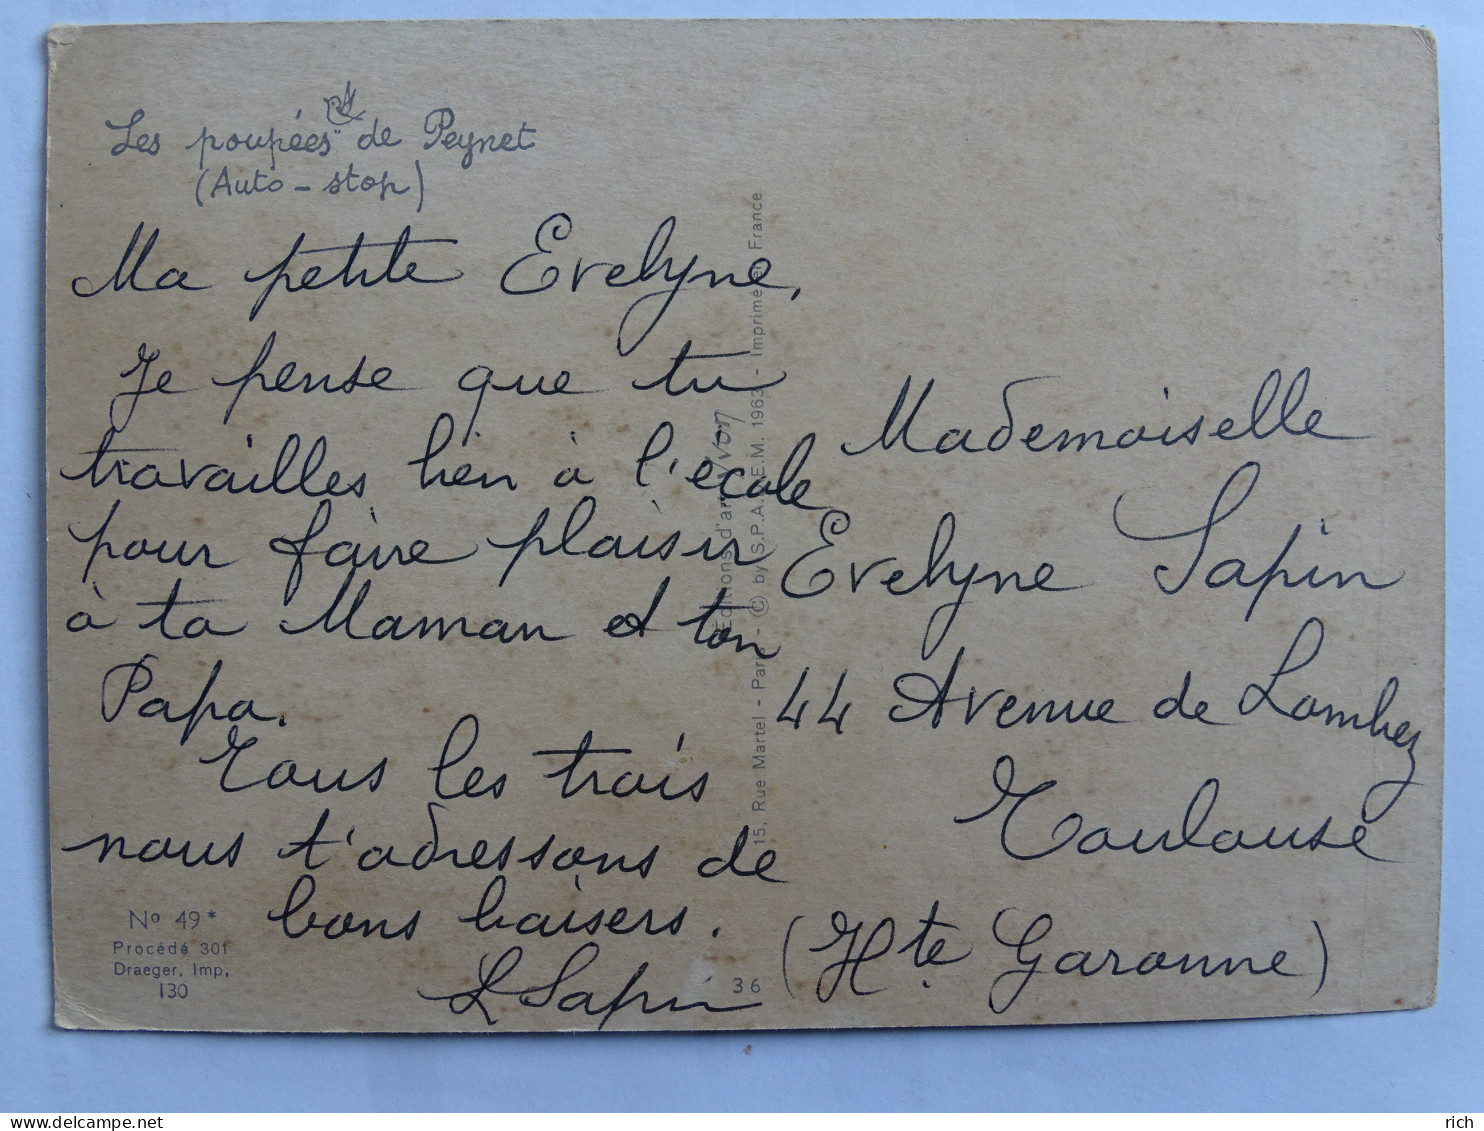 "Les poupées" de Peynet
(Auto-stop)
Ma petite Evelyne,
Je pense que tu
travailles bien à l'école
pour faire plaisir
à ta Maman et ton
Papa.
Tous les trois
nous t'adressons de
bons baisers.
L Sapin
Nº 49*
Procédé 301
Draeger, Imp.
130
Editions d'art Yvon
15, Rue Martel - Paris - © by S.P.A.D.E.M. 1963 - Imprimé en France
36
Mademoiselle
Evelyne Sapin
44 Avenue de Lombez
Toulouse
(Hte Garonne)
delcampe.net
rich